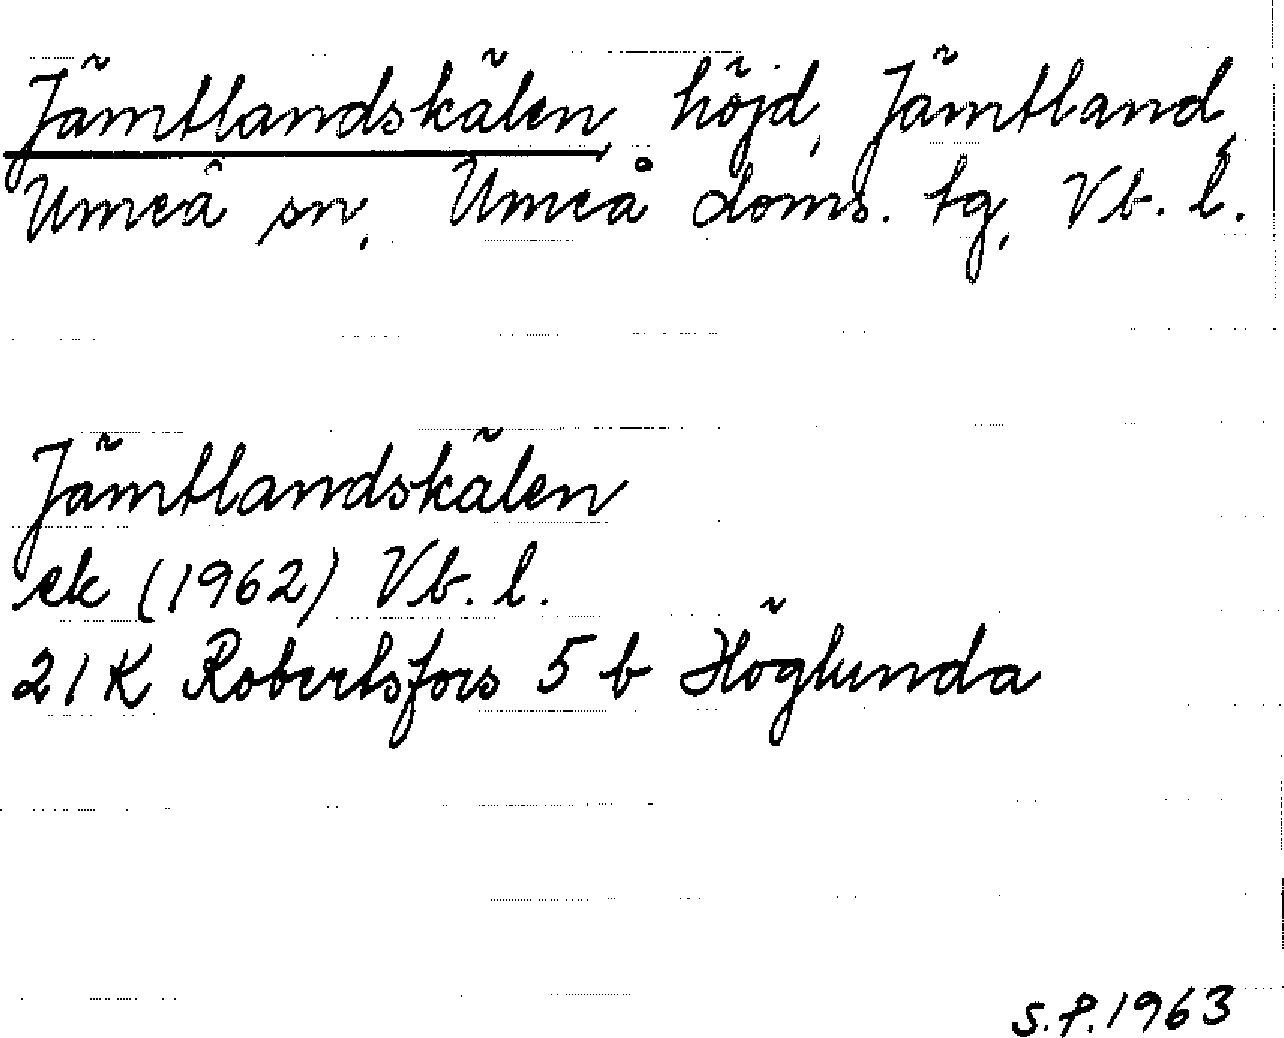 Jämtlandskälen, höjd, Jämtland,
Umeå sn, Umeå doms. tg, Vb. l.
Jämtlandskälen
ek (1962) Vb. l.
21K Robertsfors 5 b Höglunda
S.P. 1963